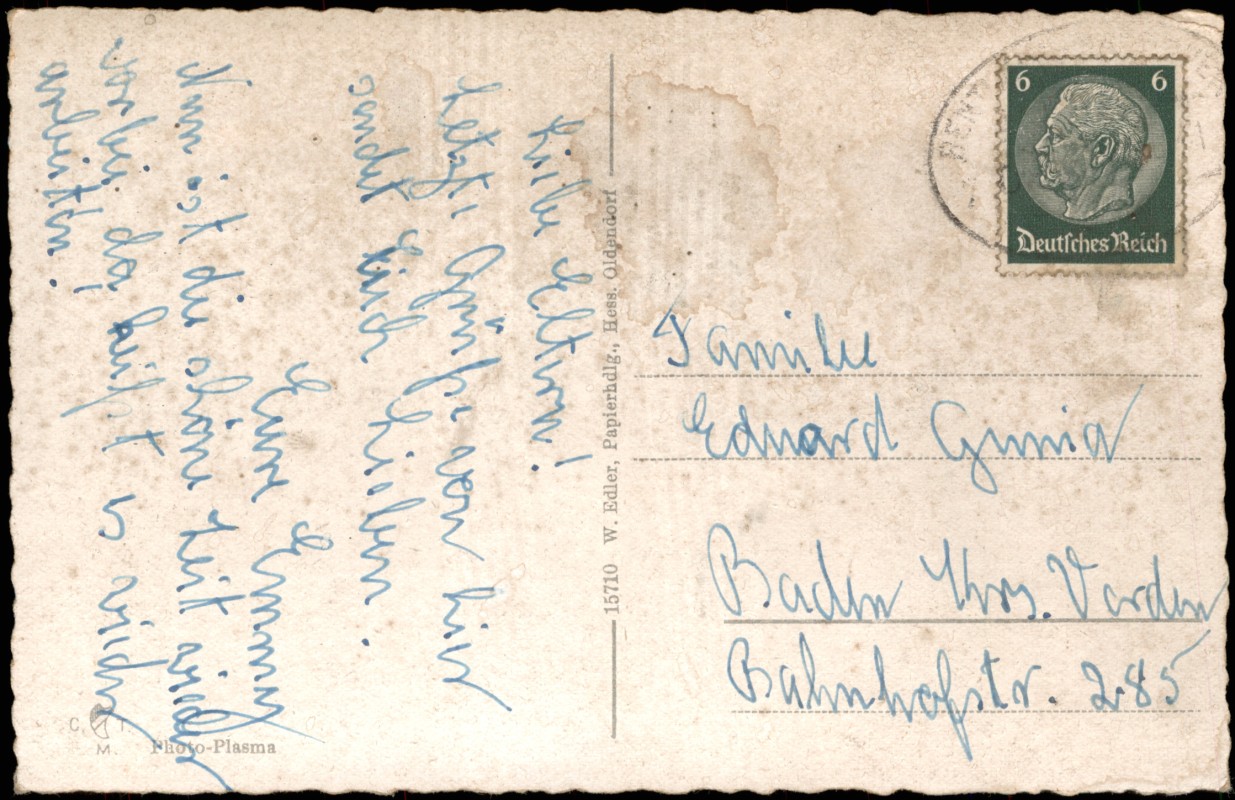 Liebe Eltern!
Letzte Grüße von hier
sendet Euch Lieben.
Eure Emmy
Nun ist die schöne Zeit wieder
vorbei da heißt es wieder
arbeiten!
15710 W. Edler, Papierhdlg., Hess. Oldendorf
C. T.
M.
Photo-Plasma
6 6
Deutsches Reich
Familie
Eduard Gunia
Baden Krs. Verden
Bahnhofstr. 285